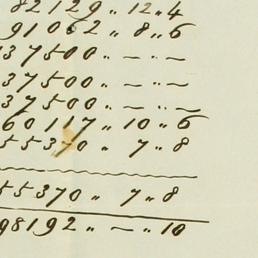 82129 〃 12 〃 4
91062 〃 8 〃 6
37500 〃 — 〃 —
37500 〃 — 〃 —
37500 〃 — 〃 —
60117 〃 10 〃 6
55370 〃 7 〃 8
55370 〃 7 〃 8
98192 〃 — 〃 10